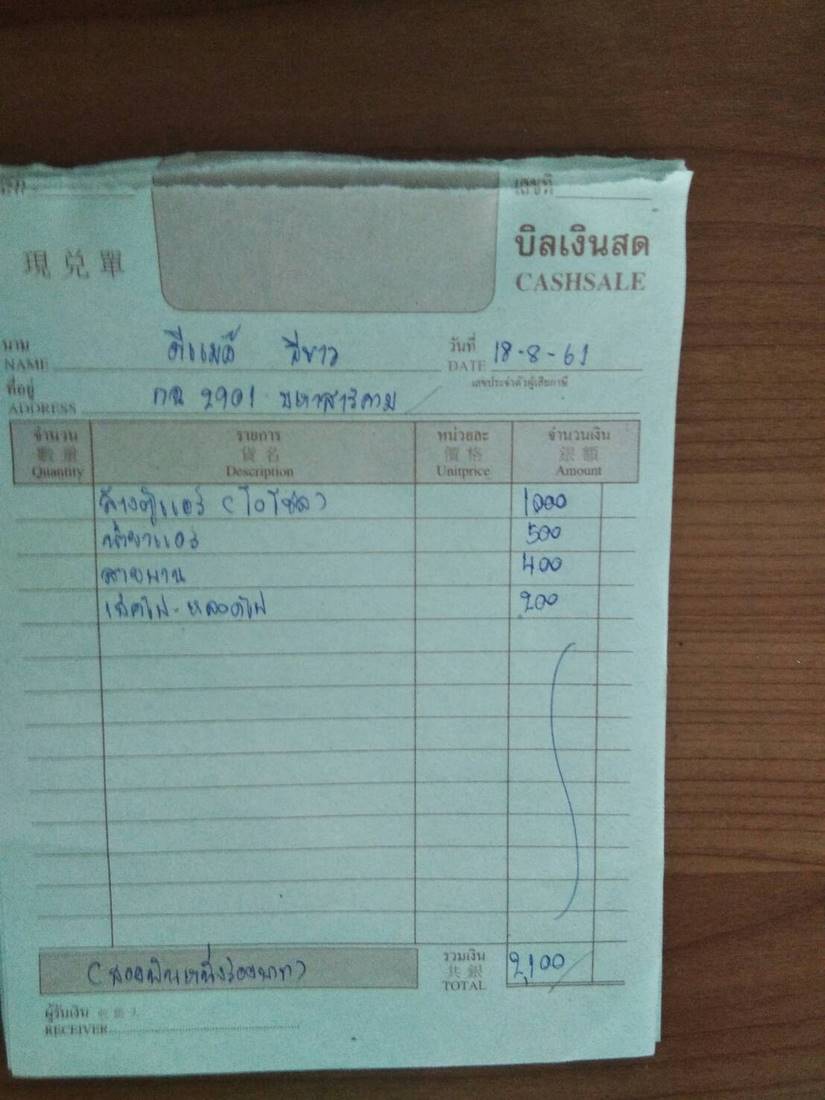 เลขที่
現兌單
บิลเงินสด
CASHSALE
นาม ดีแมต์ สีขาว วันที่ 18-8-61
NAME DATE
ที่อยู่ กฉ 2901 มหาสารคาม เลขประจำตัวผู้เสียภาษี
ADDRESS
จำนวน รายการ หน่วยละ จำนวนเงิน
數量 貨名 價格 銀額
Quantity Description Unitprice Amount
ล้างตู้แอร์ (โบ 1000
น้ำยาแอร์ 500
สายพาน 400
เช็คไฟ-หลอดไฟ 200
(สองพันหนึ่งร้อยบาท) รวมเงิน 2,100
共銀
TOTAL
ผู้รับเงิน
RECEIVER